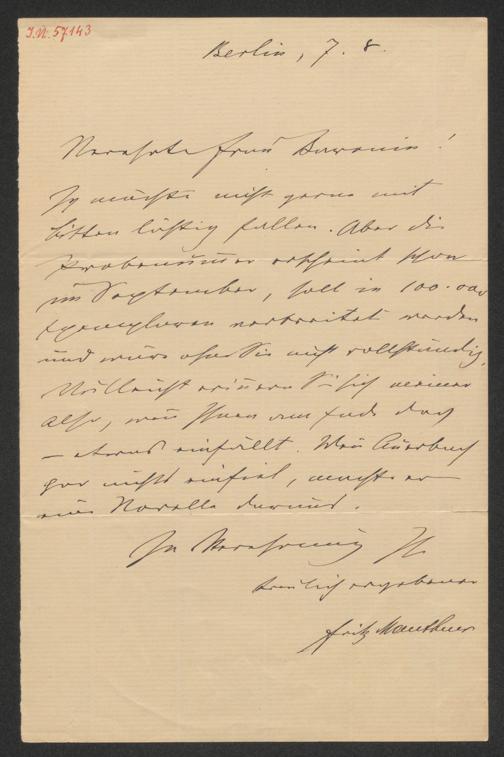 I.N. 57143
Berlin, 7. 8.
Verehrte Frau Baronin!
Ich möchte nicht gerne mit
Bitten lästig fallen. Aber die
Probenummer erscheint schon
im September, soll in 100.000
Exemplaren verbreitet werden
und wäre ohne Sie nicht vollständig.
Vielleicht erinnern Sie sich meiner
also, wenn Ihnen am Ende doch
– etwas einfällt. Wenn Auerbach
gar nichts einfiel, machte er
eine Novelle daraus.
In Verehrung Ihr
treulich ergebener
Fritz Mauthner